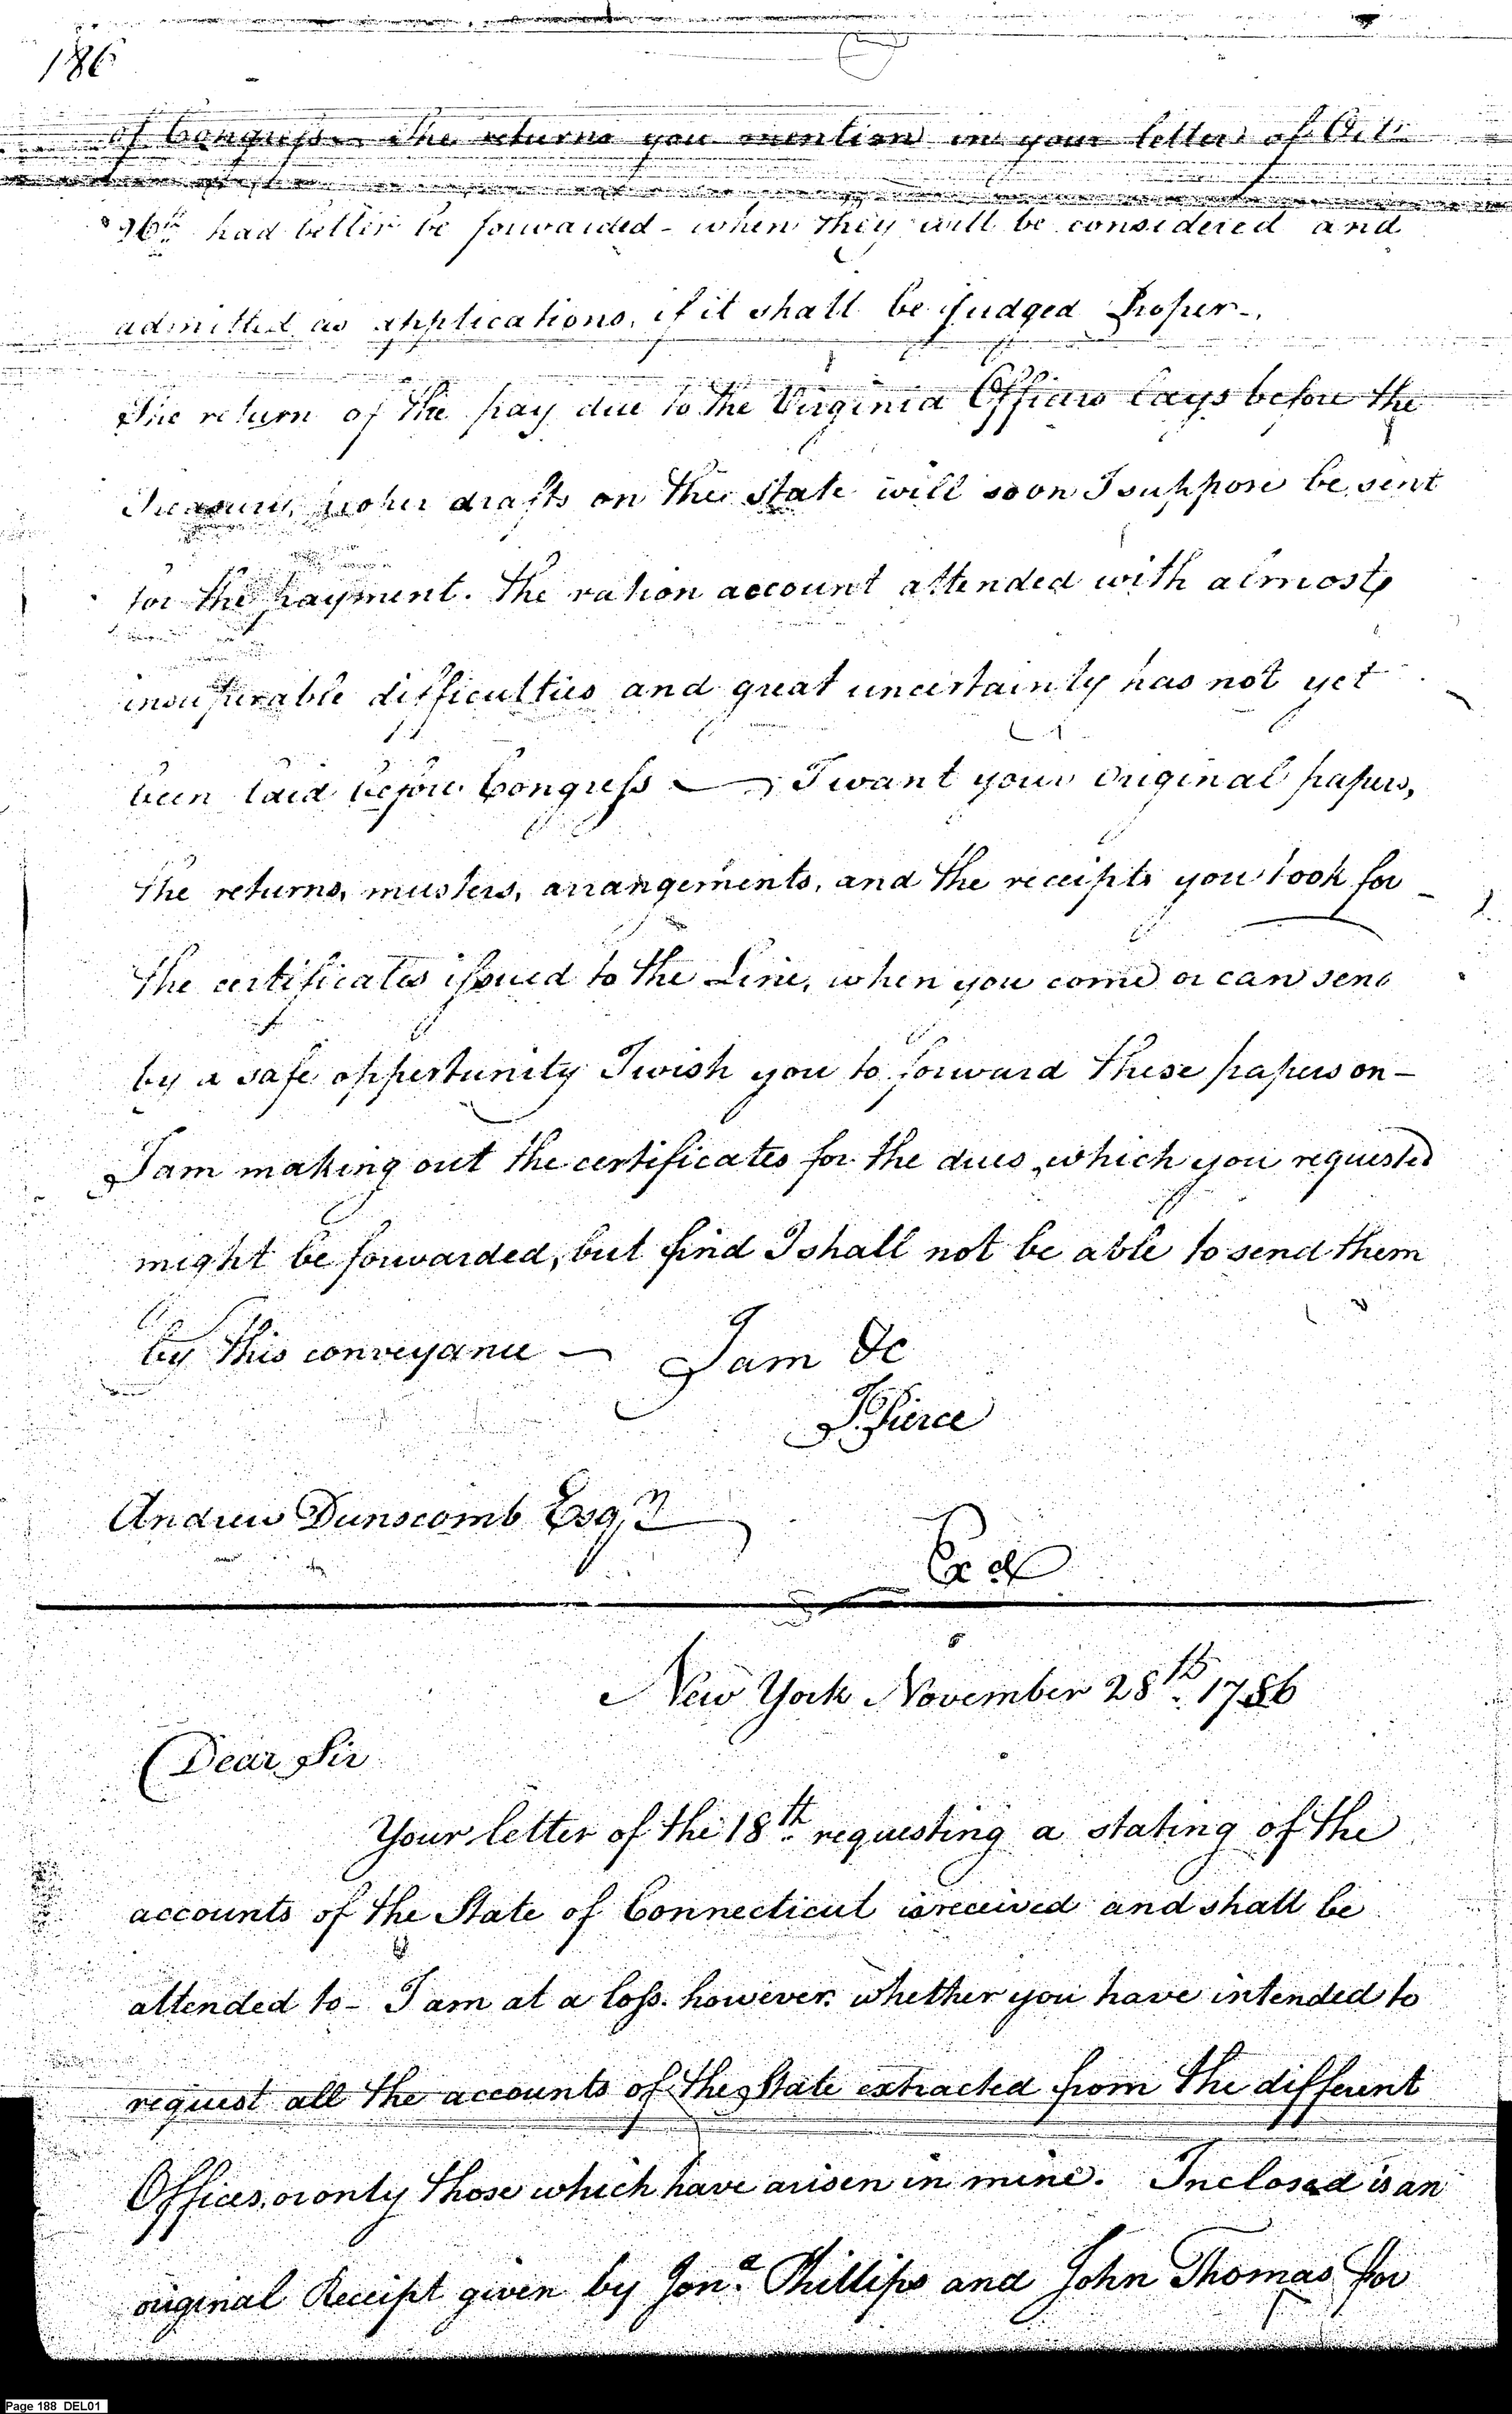 186
of Congress. The returns you mention in your letter of Octr
26th had better be forwarded - when they will be considered and
admitted as applications, if it shall be judged Proper -.
The return of the pay due to the Virginia Officers lays before the
Treasury, drafts on the State will soon I suppose be sent
for the payment. The ration account attended with almost
insuperable difficulties and great uncertainty has not yet
been laid before Congress — I want your original papers,
the returns, musters, arrangements, and the receipts you took for
the certificates issued to the Line, when you come or can send
by a safe oppertunity I wish you to forward these papers on -
I am making out the certificates for the dues, which you requested
might be forwarded, but find I shall not be able to send them
by this conveyance — I am &c
J. Pierce
Andrew Dunscomb Esqr
Ex d
New York November 28th. 1786
Dear Sir
Your letter of the 18th. requesting a stating of the
accounts of the State of Connecticut is received and shall be
attended to - I am at a loss. however. whether you have intended to
request all the accounts of the State extracted from the different
Offices, or only those which have arisen in mine. Inclosed is an
original Receipt given by Jona. Phillips and John Thomas for
Page 188 DEL01